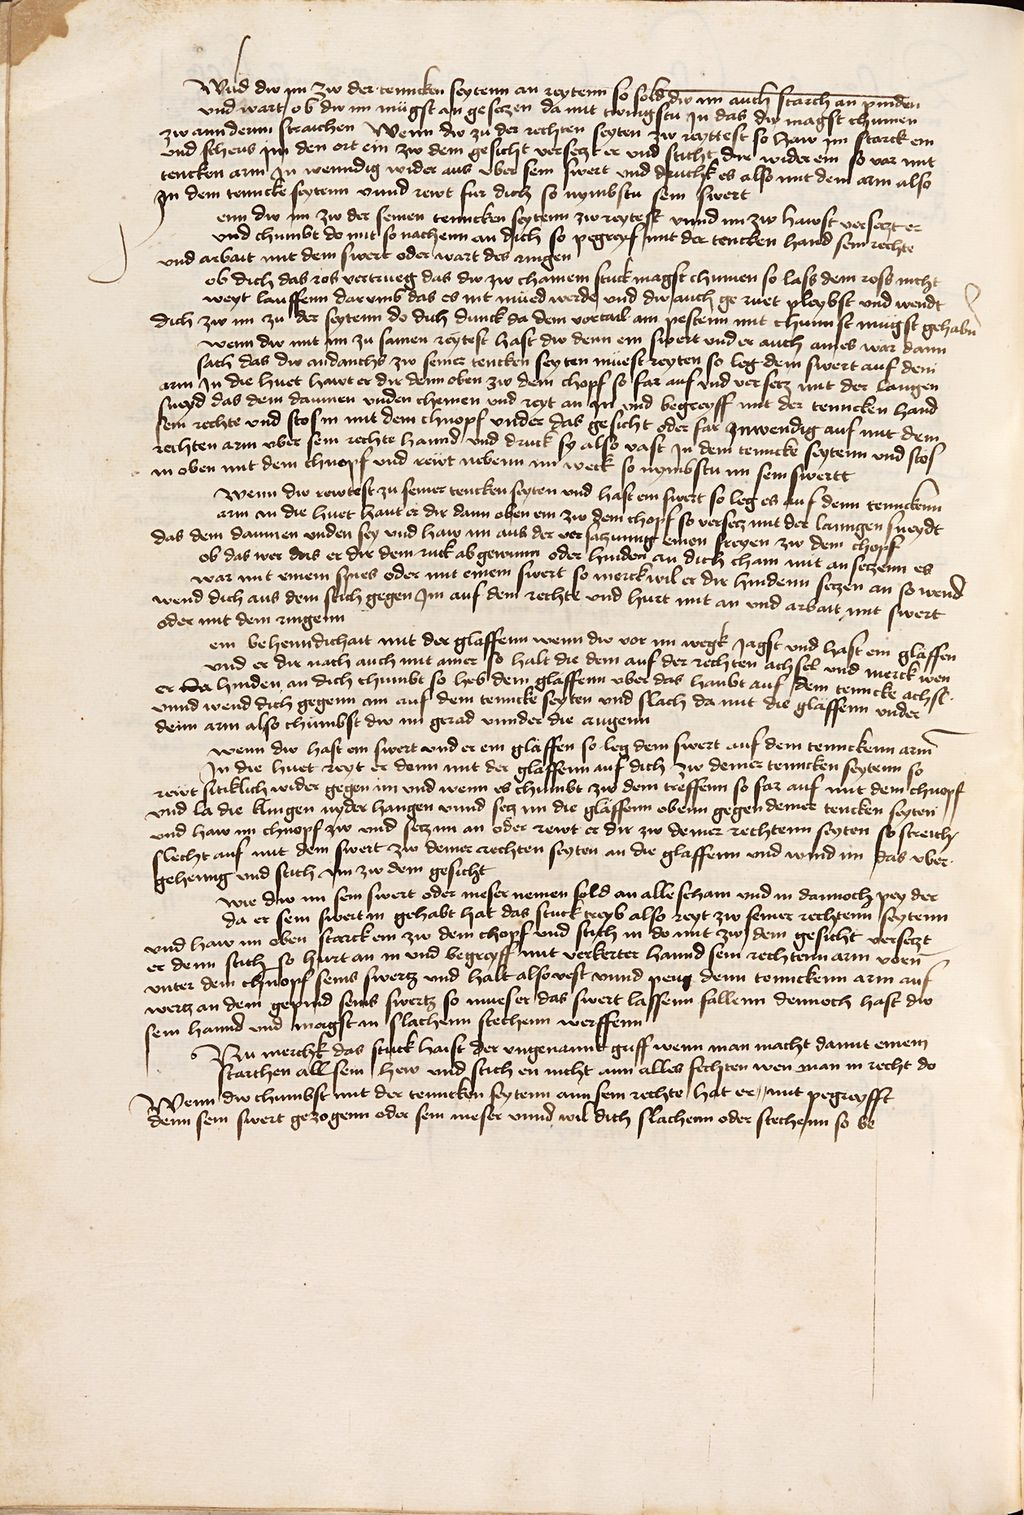 Wild dw im zw der tenncken seytenn an reytenn so sold dw im auch starch an pinden
und wart ob dw im mügst an gesetzen da mit twingstu In das dw magst chumen
zw annderm straichen Wenn dw zu der rechten seyten zw reyttest so haw im starck ein
und scheus Im den ort ein zw dem gesicht versetzt er und sticht dir wider ein so var mit
tencken arm In wenndig wider aus uber sein swert und druckh es also mit dem arm also
In dem tenncke seytenn unnd rewt fur dich so nymbstu sein swert
enn dw im zw der seinen tenncken seytenn zw reytest unnd im zw hawst versetzt er
und chumbt do mit so nachenn an dich so pegreyf mit der tencken hand sein rechte
und arbait mit dem swert oder wart des ringen
ob dich das ros vertrueg das dw zw chainem stuck magst chumen so lass dem ross nicht
weyt lauffenn darumb das es nit müed werde und dw auch geruet pleybst und wendt
dich zw im zu der seytenn do dich dunck da dein vortail am pestenn mit chunst mügst gehabn
wenn dw mit im zu samen reytest hast dw denn ein swert und er auch aines war dann
sach das dw andanchs zw seiner tencken seyten müest reyten so leg dein swert auf dem
arm In die huet hawt er dir denn oben zw dem chopf so far auf und versetz mit der langen
sneyd das dein daumen unden chemen und reyt an In und begreyff mit der tenncken hand
sein rechte und stos in mit dem chnopf under das gesicht oder far Inwendig auf mit dem
rechten arm uber sein rechte hannd und druck sy also vast In dem tenncke seytenn und stos
in oben mit dem chnopf und rewt nebenn im weck so nymbstu im sein swertt
Wenn dw rewtest zu seiner tencken seyten und hast ein swert so leg es auf denn tennckenn
arm in die huet haut er dir dann oben ein zw dem chopf so versetz mit der lanngen sneydt
das dein daumen unden sey und haw im aus der versatzunng einen freyen zw dem chopf
ob das wer das er dir dein ruck ab gewunn oder hinden an dich cham mit an setzenn es
war mit einem spies oder mit einem swert so merck wil er dir hindenn setzen an so wend
wend dich aus dem stich gegen Im auf dein rechte und hurt mit an und arbait mit swert
oder mit dem ringenn
ein behenndichait mit der glaffenn wenn dw vor im wegk Jagst und hast ein glaffen
und er dir nach auch mit ainer so halt die dein auf der rechten achsel und merck wen
er hinden an dich chumbt so heb dein glaffenn uber das haubt auf dein tenncke achsel
unnd wend dich gegenn im auf dein tenncke seyten und slach da mit die glaffenn under
deim arm also chumbst dw im gerad unnder die augenn
wenn dw hast ein swert und er ein glaffen so leg dein swert auf dem tennckenn arm
In die huet reyt er denn mit der glaffenn auf dich zw deiner tenncken seytenn so
rewt sitiklich wider gegen im und wenn es chumbt zw dem treffenn so far auf mit dem chnopf
und la die klingen nyder hangen unnd setz im die glaffenn obenn gegen deiner tencken seyten
und haw im chnopf zw und setz im an oder rewt er dir zw deiner rechtenn seyten so streich
slecht auf mit dem swert zw deiner rechten seyten an die glaffenn und wind im das uber
gehenng und stich im zw dem gesicht
wie dw im sein swert oder meser nemen sold an alle scham und in dannoch pey der
da er sein swert in gehabt hat das stuck treyb also reyt zw seiner rechtenn seytenn
und haw im oben starck ein zw dem chopf und stich in do mit zw dem gesicht versetzt
er denn stich so hurt an in und begreyff mit verkerter hannd sein rechtenn arm vorn
unter dem chnopf seins swertz und halt also vest unnd peug denn tennckenn arm auf
wertz an dem gepind seins swertz so mueser das swert lassenn fallenn dennoch hast dw
sein hannd und magst in slachenn stechenn werffenn
Nu merckt das stuck haist der ungenannt griff wenn man macht damit einem
starchen all sein hew und stich en nicht ann alles fechten wen man in recht do
Wenn dw chumbst mit der tenncken seytenn ann sein rechte hat er mit pegreyfft
denn sein swert gezogenn oder sein meser unnd wil dich slachenn oder stechenn so be